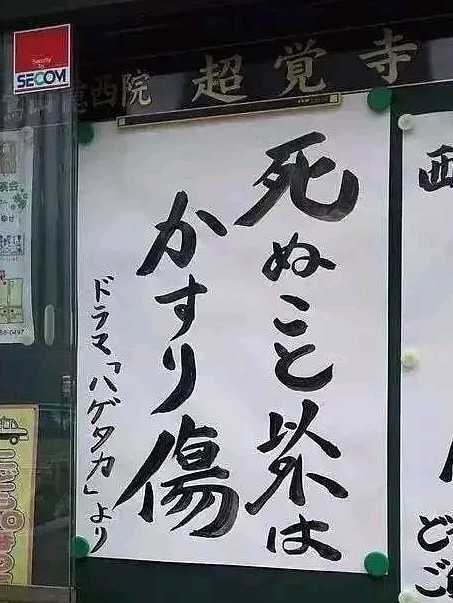 Security by
SECOM
西院 超覚寺
死ぬこと以外は
かすり傷
ドラマ「ハゲタカ」より
西
ど
ご